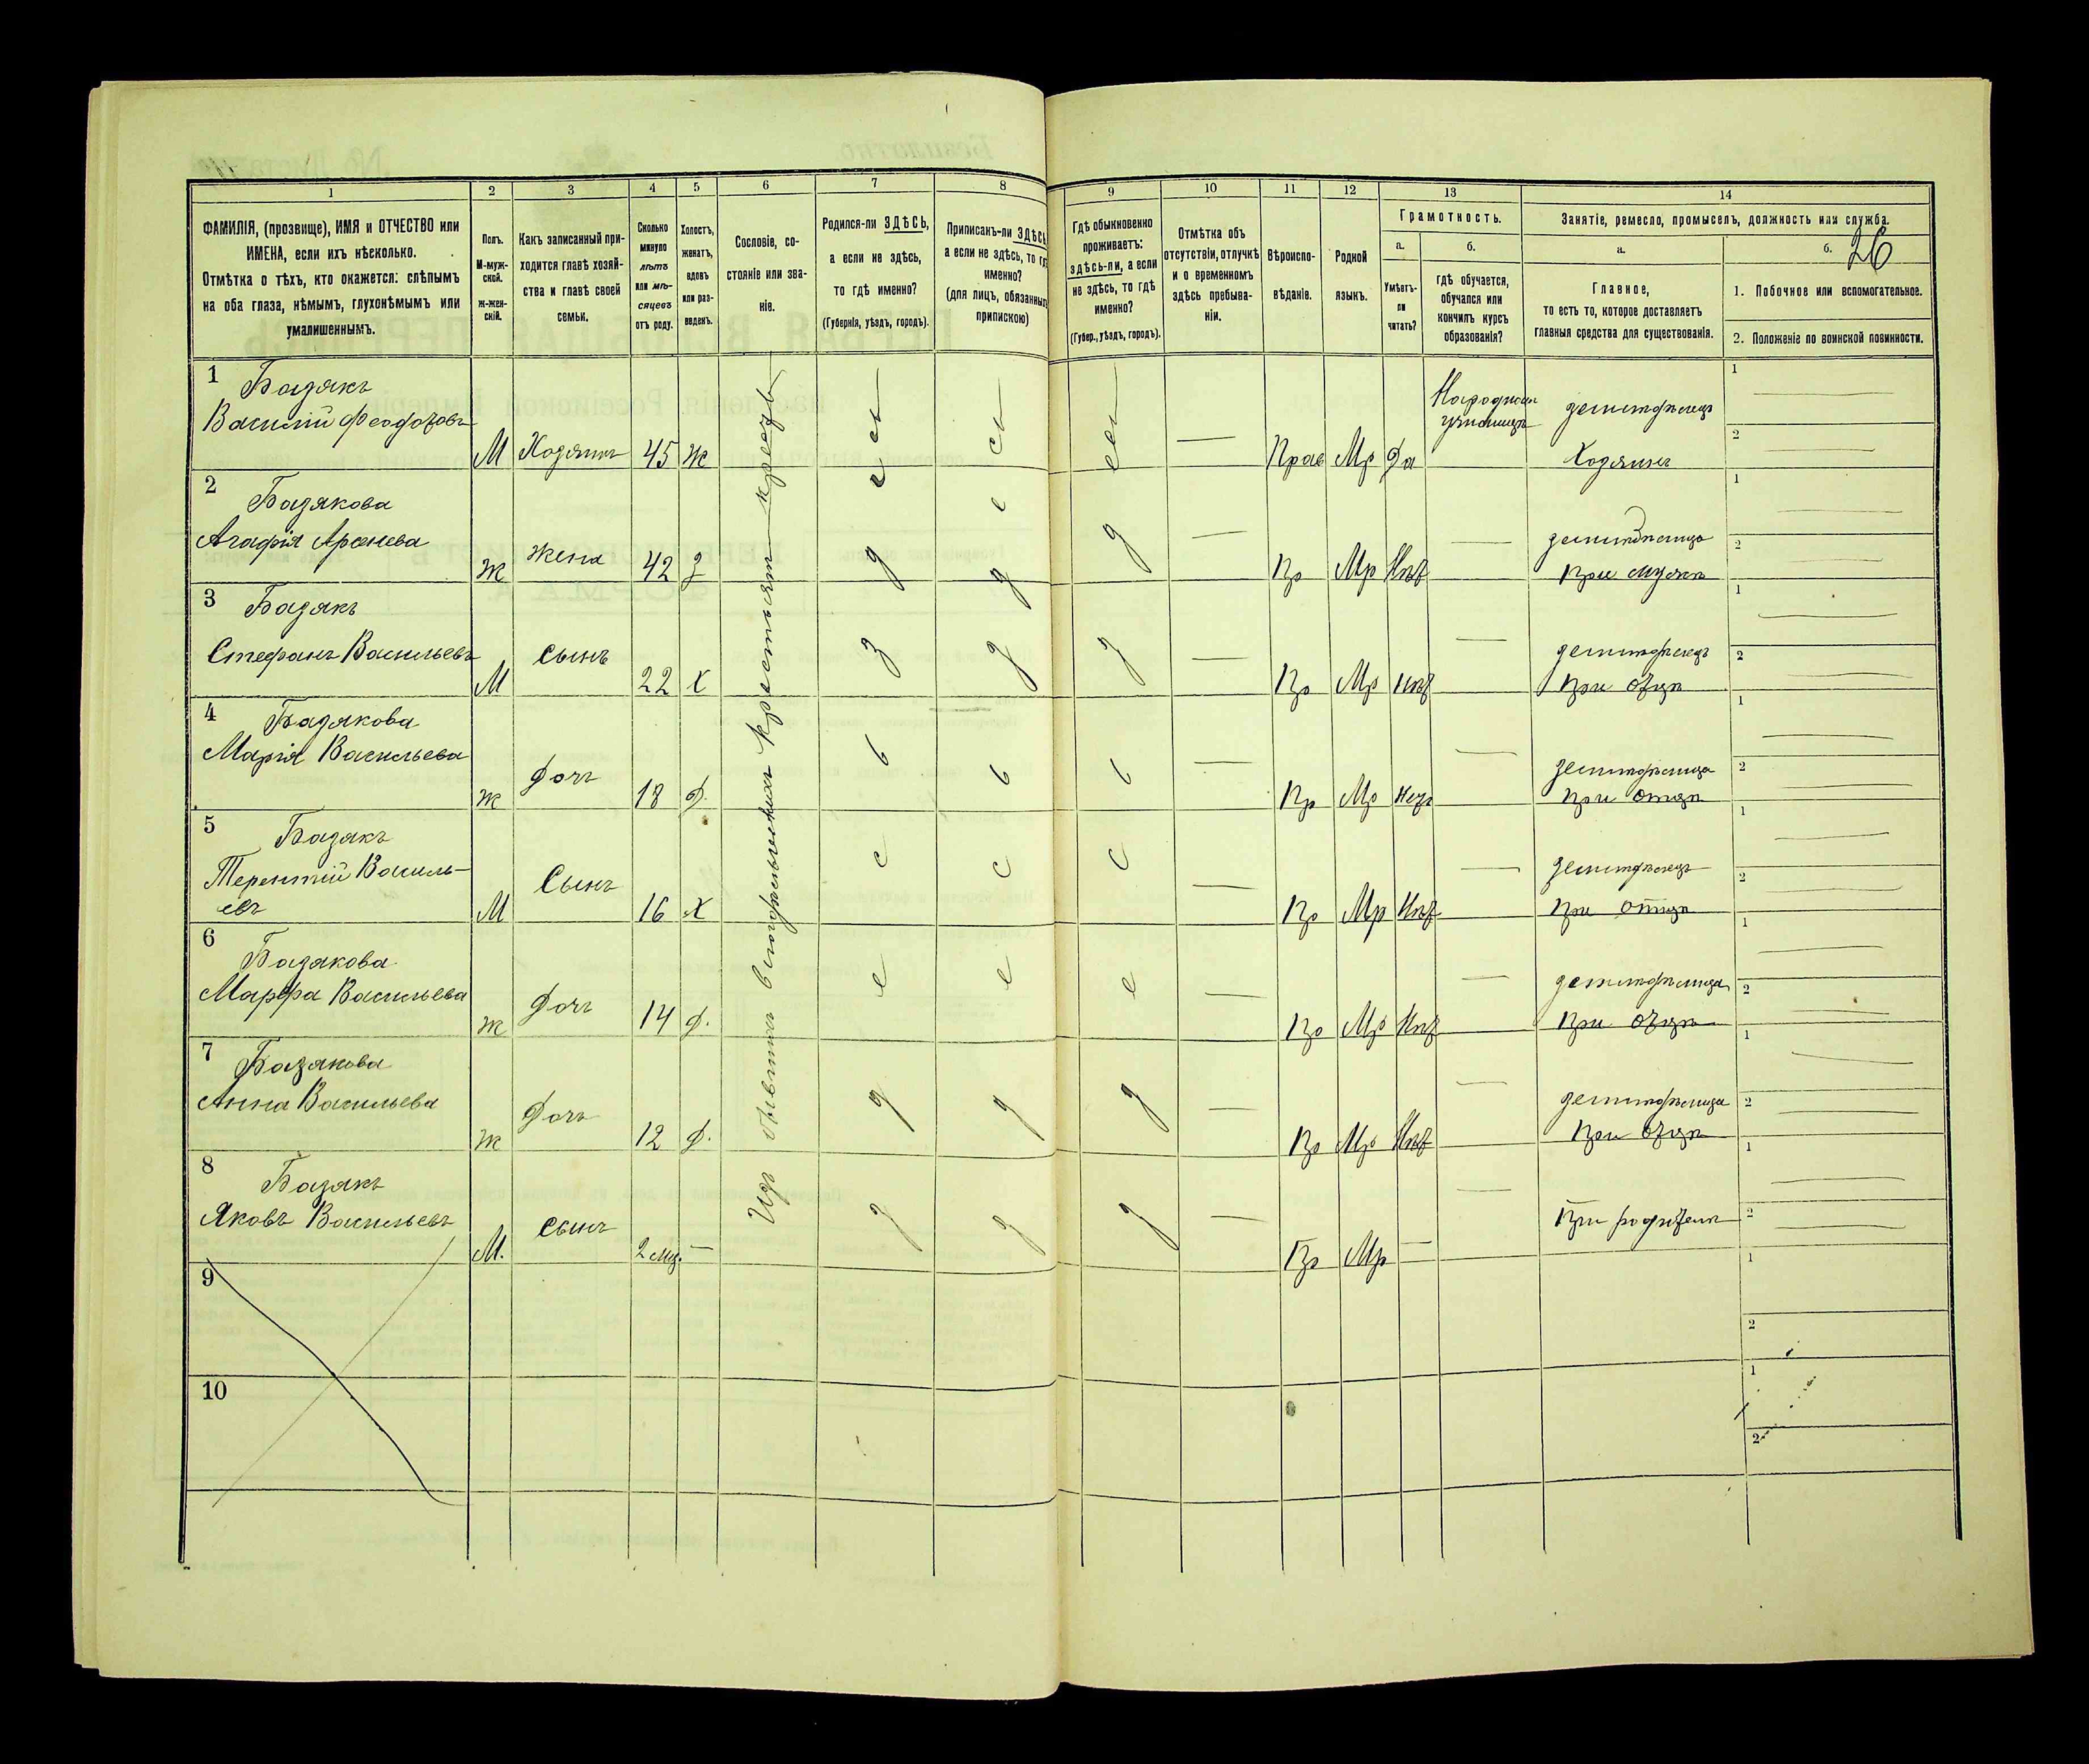 1 2 3 4 5 6 7 8 9 10 11 12 13 14
ФАМИЛІЯ, (прозвище), ИМЯ и ОТЧЕСТВО или
ИМЕНА, если ихъ нѣсколько.
Отмѣтка о тѣхъ, кто окажется: слѣпымъ
на оба глаза, нѣмымъ, глухонѣмымъ или
умалишеннымъ.
Полъ.
М-муж-
ской.
Ж-жен-
скій.
Какъ записанный при-
ходится главѣ хозяй-
ства и главѣ своей
семьи.
Сколько
минуло
лѣтъ
или мѣ-
сяцевъ
отъ роду.
Холостъ,
женатъ,
вдовъ
или раз-
веденъ.
Сословіе, со-
стояніе или зва-
ніе.
Родился-ли ЗДѢСЬ,
а если не здѣсь,
то гдѣ именно?
(Губернія, уѣздъ, городъ).
Приписанъ-ли ЗДѢСЬ
а если не здѣсь, то гдѣ
именно?
(для лицъ, обязанныхъ
припискою)
Гдѣ обыкновенно
проживаетъ:
здѣсь-ли, а если
не здѣсь, то гдѣ
именно?
(Губер., уѣздъ, городъ).
Отмѣтка объ
отсутствіи, отлучкѣ
и о временномъ
здѣсь пребыва-
ніи.
Вѣроиспо-
вѣданіе.
Родной
языкъ.
Грамотность.
а.
Умѣетъ-
ли
читать?
б.
гдѣ обучается,
обучался или
кончилъ курсъ
образованія?
Занятіе, ремесло, промыселъ, должность или служба.
а.
Главное,
то есть то, которое доставляетъ
главныя средства для существованія.
б.
26
1. Побочное или вспомогательное.
2. Положеніе по воинской повинности.
1 Базякъ
Василій Феодоровъ
М Хозяинъ 45 Ж
Прав Мр Да
Народномъ
училищѣ
земледѣлецъ
Хозяинъ
1
2
2 Базякова
Агафія Арсенева
Ж Жена 42 З
Пр Мр Нѣт
земледѣлица
При мужѣ
1
2
3 Базякъ
Стефанъ Васильевъ
М сынъ 22 Х
Пр Мр Нѣт
земледѣлецъ
При отцѣ
1
2
4 Базякова
Марія Васильева
Ж Дочь 18 Д.
Пр Мр Нѣт
земледѣлица
При отцѣ
1
2
5 Базякъ
Терентій Василь-
евъ
М Сынъ 16 Х
Пр Мр Нѣт
земледѣлецъ
При отцѣ
1
2
6 Базякова
Марфа Васильева
Ж Дочь 14 Д.
Пр Мр Нѣт
земледѣлица
При отцѣ
1
2
7 Базякова
Анна Васильева
Ж Дочь 12 Д.
Пр Мр Нѣт
земледѣлица
При отцѣ
1
2
8 Базякъ
Яковъ Васильевъ
М. сынъ 2 мц.
Пр Мр
При родителѣ
1
2
Изъ бывшихъ владѣльческихъ крестьянъ
здѣсь
здѣсь
здѣсь
9
1
2
10
1
2